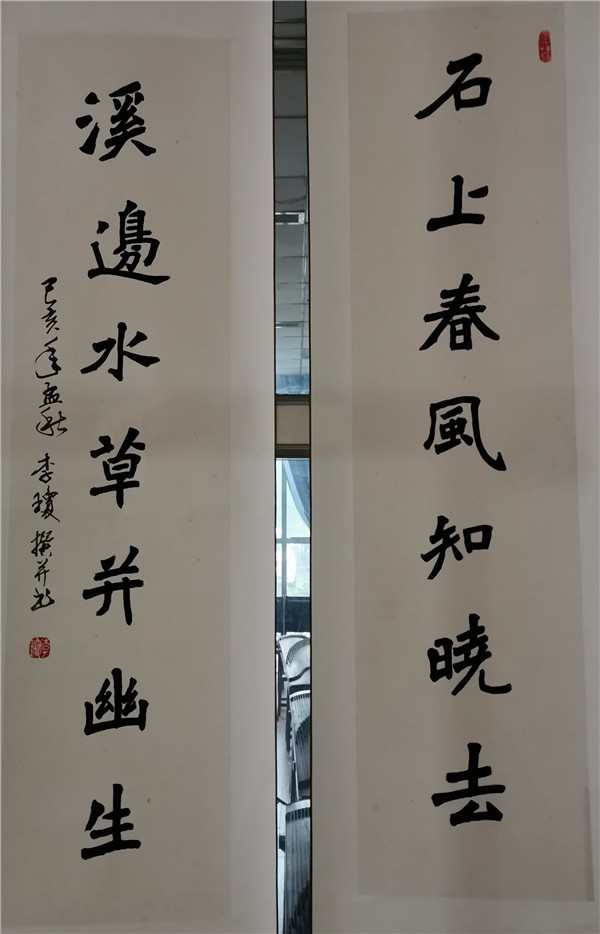 石上春風知曉去
溪邊水草并幽生
己亥年孟秋 李瓊撰并书